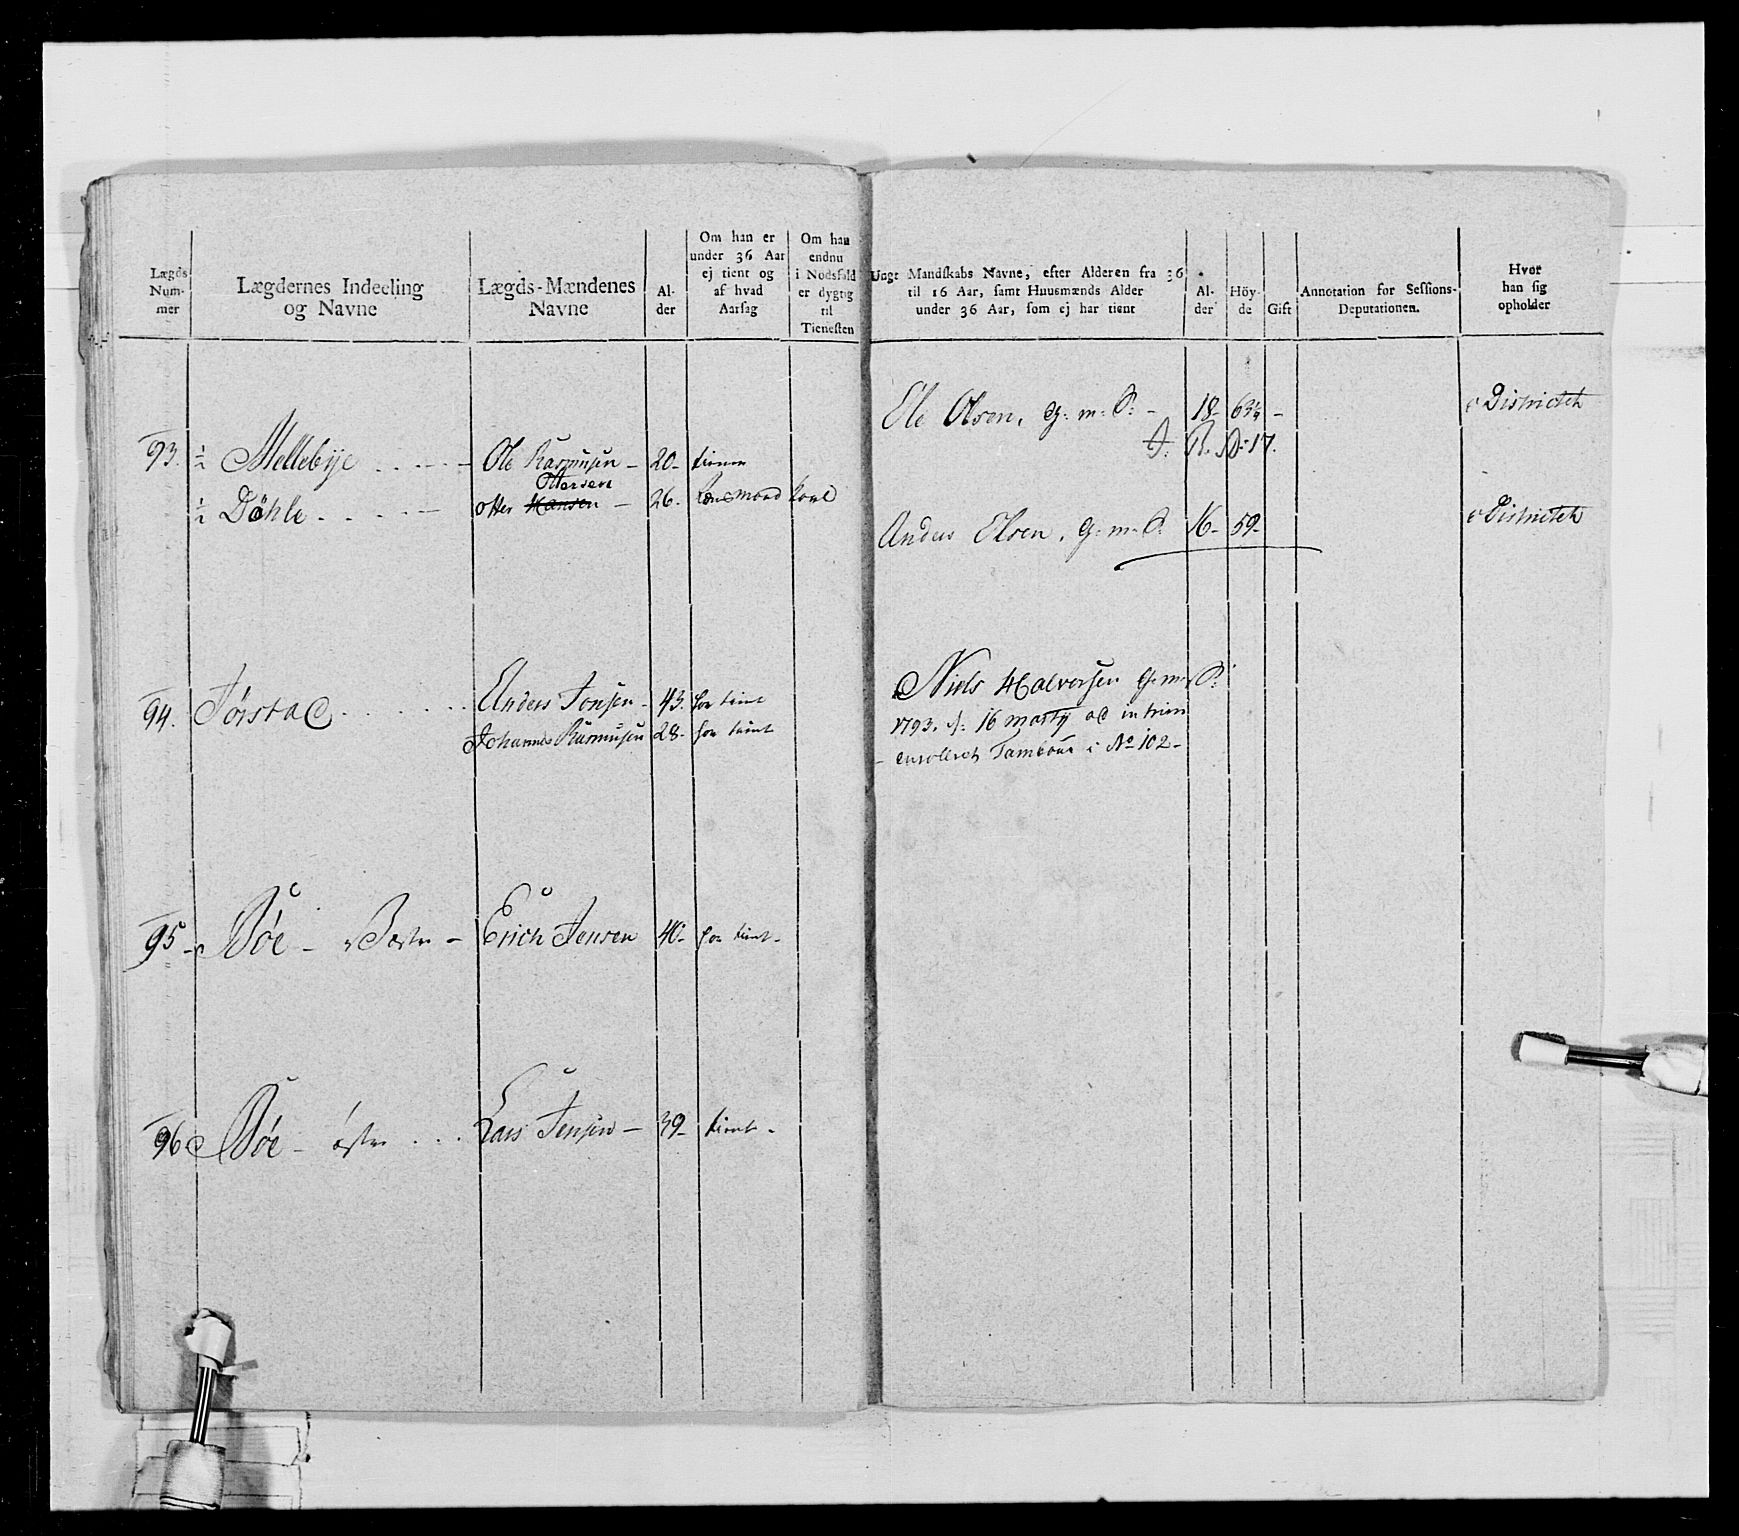 Lægds Num- mer
Lægdernes Indeeling og Navne
Lægds-Mændenes Navne
Al- der
Om han er under 36 Aar ej tient og af hvad Aarsag
Om han endnu i Nødsfald er dygtig til Tienesten
Ungt Mandskabs Navne, efter Alderen fra 36 til 16 Aar, samt Huusmænds Alder under 36 Aar, som ej har tient
Al- der
Höy- de
Gift
Annotation for Sessions- Deputationen.
Hvor han sig opholder
Ole Olsen, G: m: S: - 18- 63¼ - i Districtet
N: 17.
93. ½ Mellebye - - - - - Ole Rasmusen - 20- tienner
Ottersen
½ Döhle - - - - otter Hansen - 26. Lensmand
Anders Olsen, G: m: S: 16- 59- i Districtet
94. Torstad - - - - Anders Jonsen - 43. har tient
Johannes Rasmusen 28- har tient
Niels Halvorsen G: m: S:
1793. d: 16 Martij ad interim
enrolleret Tambour i No 102-
95 - Bøe - Vestre - Erich Jensen 40- har tient -
96 Bøe - østre - - - Lars Jensen - 39- tient -